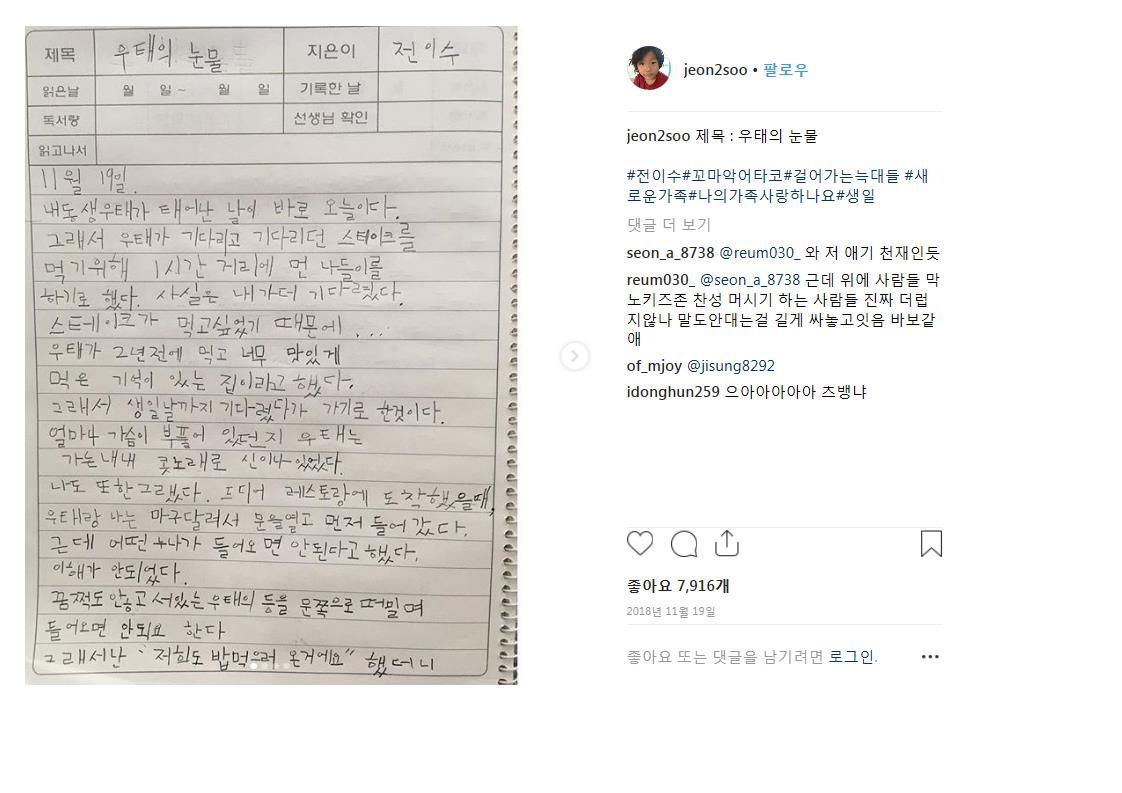 제목 우태의 눈물 지은이 전이수
읽은날 월 일 ~ 월 일 기록한 날
독서량 선생님 확인
읽고나서
11월 19일.
내동생우태가 태어난 날이 바로 오늘이다.
그래서 우태가 기다리고 기다리던 스테이크를
먹기위해 1시간 거리에 먼 나들이를
하기로 했다. 사실은 내가더 기다렸다.
스테이크가 먹고싶었기 때문에....
우태가 2년전에 먹고 너무 맛있게
먹은 기억이 있는 집이라고 했다.
그래서 생일날까지 기다렸다가 가기로 한것이다.
얼마나 가슴이 부풀어 있던지 우태는
가는내내 콧노래로 신이나 있었다.
나도 또한 그랬다. 드디어 레스토랑에 도착했을때,
우태랑 나는 마구달려서 문을열고 먼저 들어 갔다.
근데 어떤 누나가 들어오면 안된다고 했다.
이해가 안되었다.
꿈쩍도 안하고 서있는 우태의 등을 문쪽으로 떠밀며
들어오면 안되요 한다
그래서난 “저희도 밥먹으러 온거에요” 했더니
jeon2soo • 팔로우
jeon2soo 제목 : 우태의 눈물
#전이수#꼬마악어타코#걸어가는늑대들 #새
로운가족#나의가족사랑하나요#생일
댓글 더 보기
seon_a_8738 @reum030_ 와 저 애기 천재인듯
reum030_ @seon_a_8738 근데 위에 사람들 막
노키즈존 찬성 머시기 하는 사람들 진짜 더럽
지않나 말도안대는걸 길게 싸놓고잇음 바보같
애
of_mjoy @jisung8292
idonghun259 으아아아아아 츠뱅냐
좋아요 7,916개
2018년 11월 19일
좋아요 또는 댓글을 남기려면 로그인.